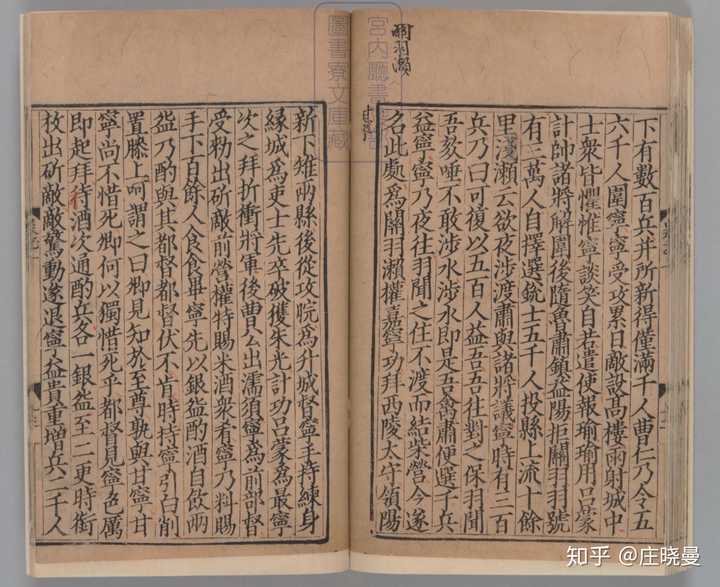 關羽瀨
下有數百兵并所新得僅滿千人曹仁乃令五
六千人圍寧寧受攻累日敵設高樓雨射城中
士衆皆懼惟寧談笑自若遣使報瑜瑜用呂蒙
計帥諸將解圍後隨魯肅鎮益陽拒關羽羽號
有三萬人自擇選銳士五千人投縣上流十餘
里淺瀨云欲夜涉渡肅與諸將議寧時有三百
兵乃曰可復以五百人益吾吾往對之保羽聞
吾欬唾不敢涉水涉水即是吾禽肅便選千兵
益寧寧乃夜往羽聞之住不渡而結柴營今遂
名此處爲關羽瀨權嘉寧功拜西陵太守領陽
新下雉兩縣後從攻院爲升城督寧手持練身
緣城爲吏士先卒破獲朱光計功呂蒙爲最寧
次之拜折衝將軍後曹公出濡須寧爲前部督
受勑出斫敵前營權特賜米酒衆肴寧乃料賜
手下百餘人食食畢寧先以銀盌酌酒自飲兩
盌乃酌與其都督都督伏不肯時持寧引白削
置膝上呵謂之曰卿見知於至尊孰與甘寧甘
寧尚不惜死卿何以獨惜死乎都督見寧色厲
即起拜待酒次通酌兵各一銀盌至二更時銜
枚出斫敵敵驚動遂退寧益貴重增兵二千人
圖書寮文庫藏
知乎 @庄晓曼